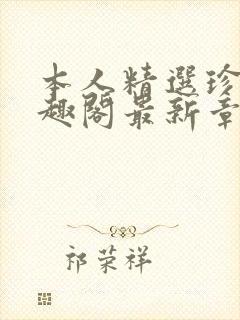 本人精選珍
趣閣最新章
祁荣祥